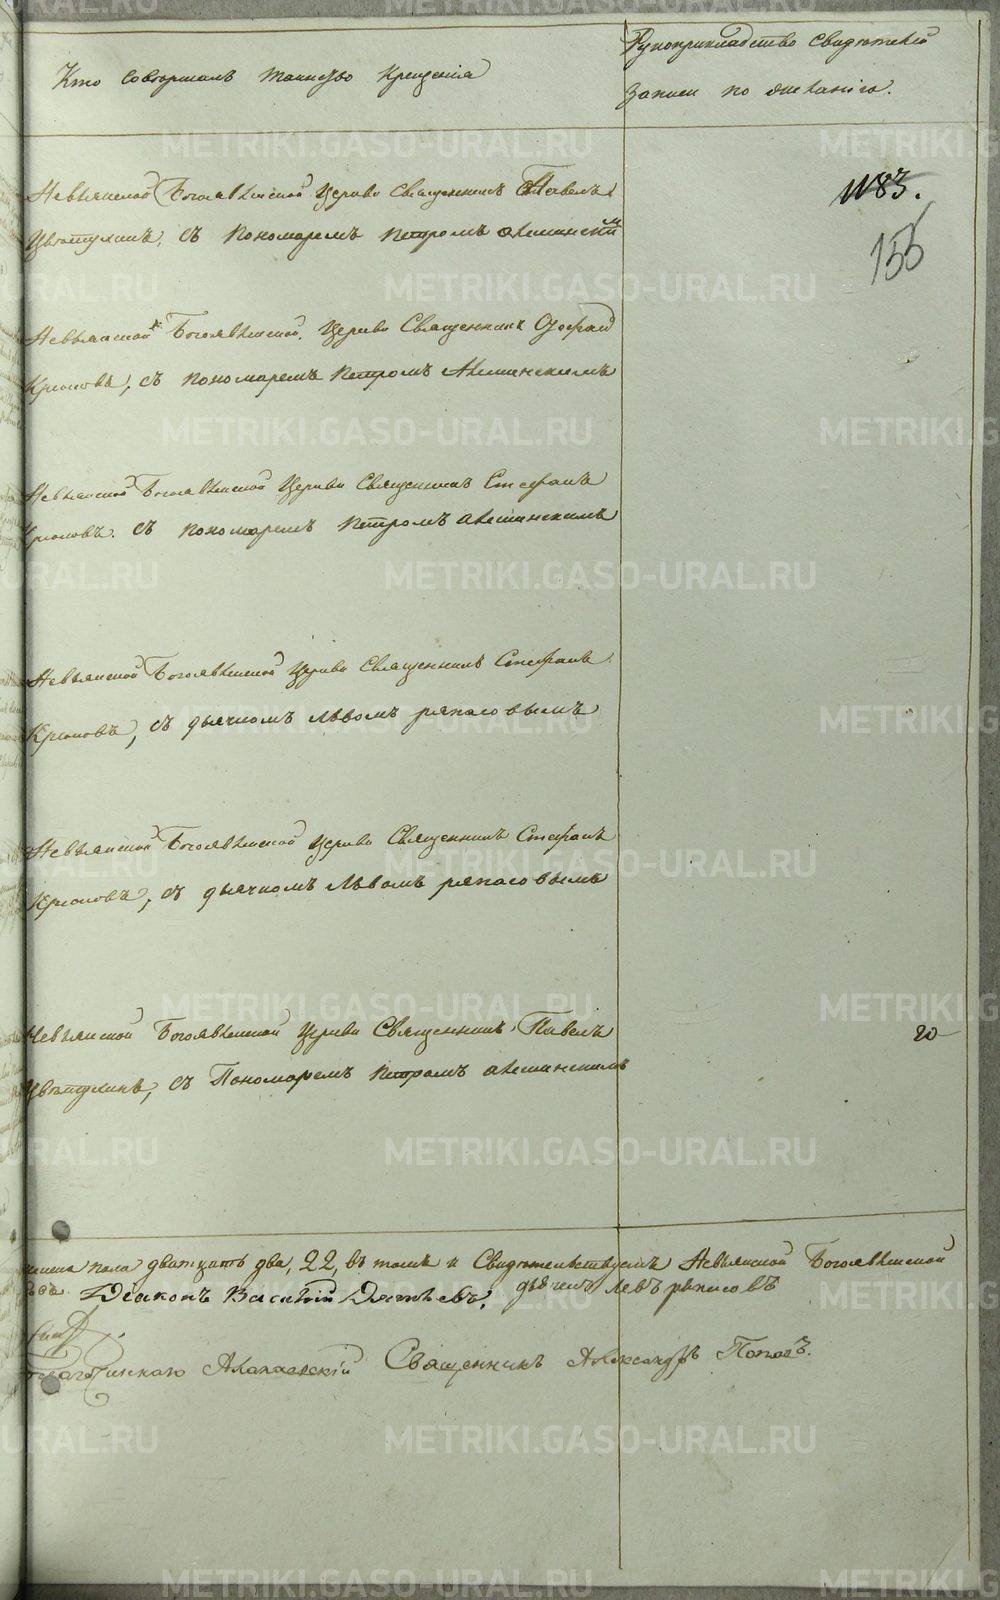 Кто совершалъ таинство крещенія
Рукоприкладство свидѣтелей
записи по желанію.
1183.
155
Невьянской Богоявленской Церкви Священникъ Павелъ
Цвѣтухинъ, съ пономаремъ Петромъ
Невьянской Богоявленской Церкви Священникъ Стефан
Крюковъ, съ пономаремъ Петромъ
Невьянской Богоявленской Церкви Священникъ Стефанъ
Крюковъ. съ пономаремъ Петромъ
Невьянской Богоявленской Церкви Священникъ Стефанъ
Крюковъ, съ дьячкомъ Львомъ ряпасовымъ
Невьянской Богоявленской Церкви Священникъ Стефанъ
Крюковъ, съ дьячкомъ Львомъ ряпасовымъ
Невьянской Богоявленской Церкви Священникъ Павелъ
20
Цвѣтухинъ, съ Пономаремъ Петромъ
пола дватцать два, 22, въ томъ и Свидѣтельствуемъ Невьянской Богоявленской
Діаконъ Василій дьячекъ Левъ
Священникъ Александръ Поповъ.
METRIKI.GASO-URAL.RU